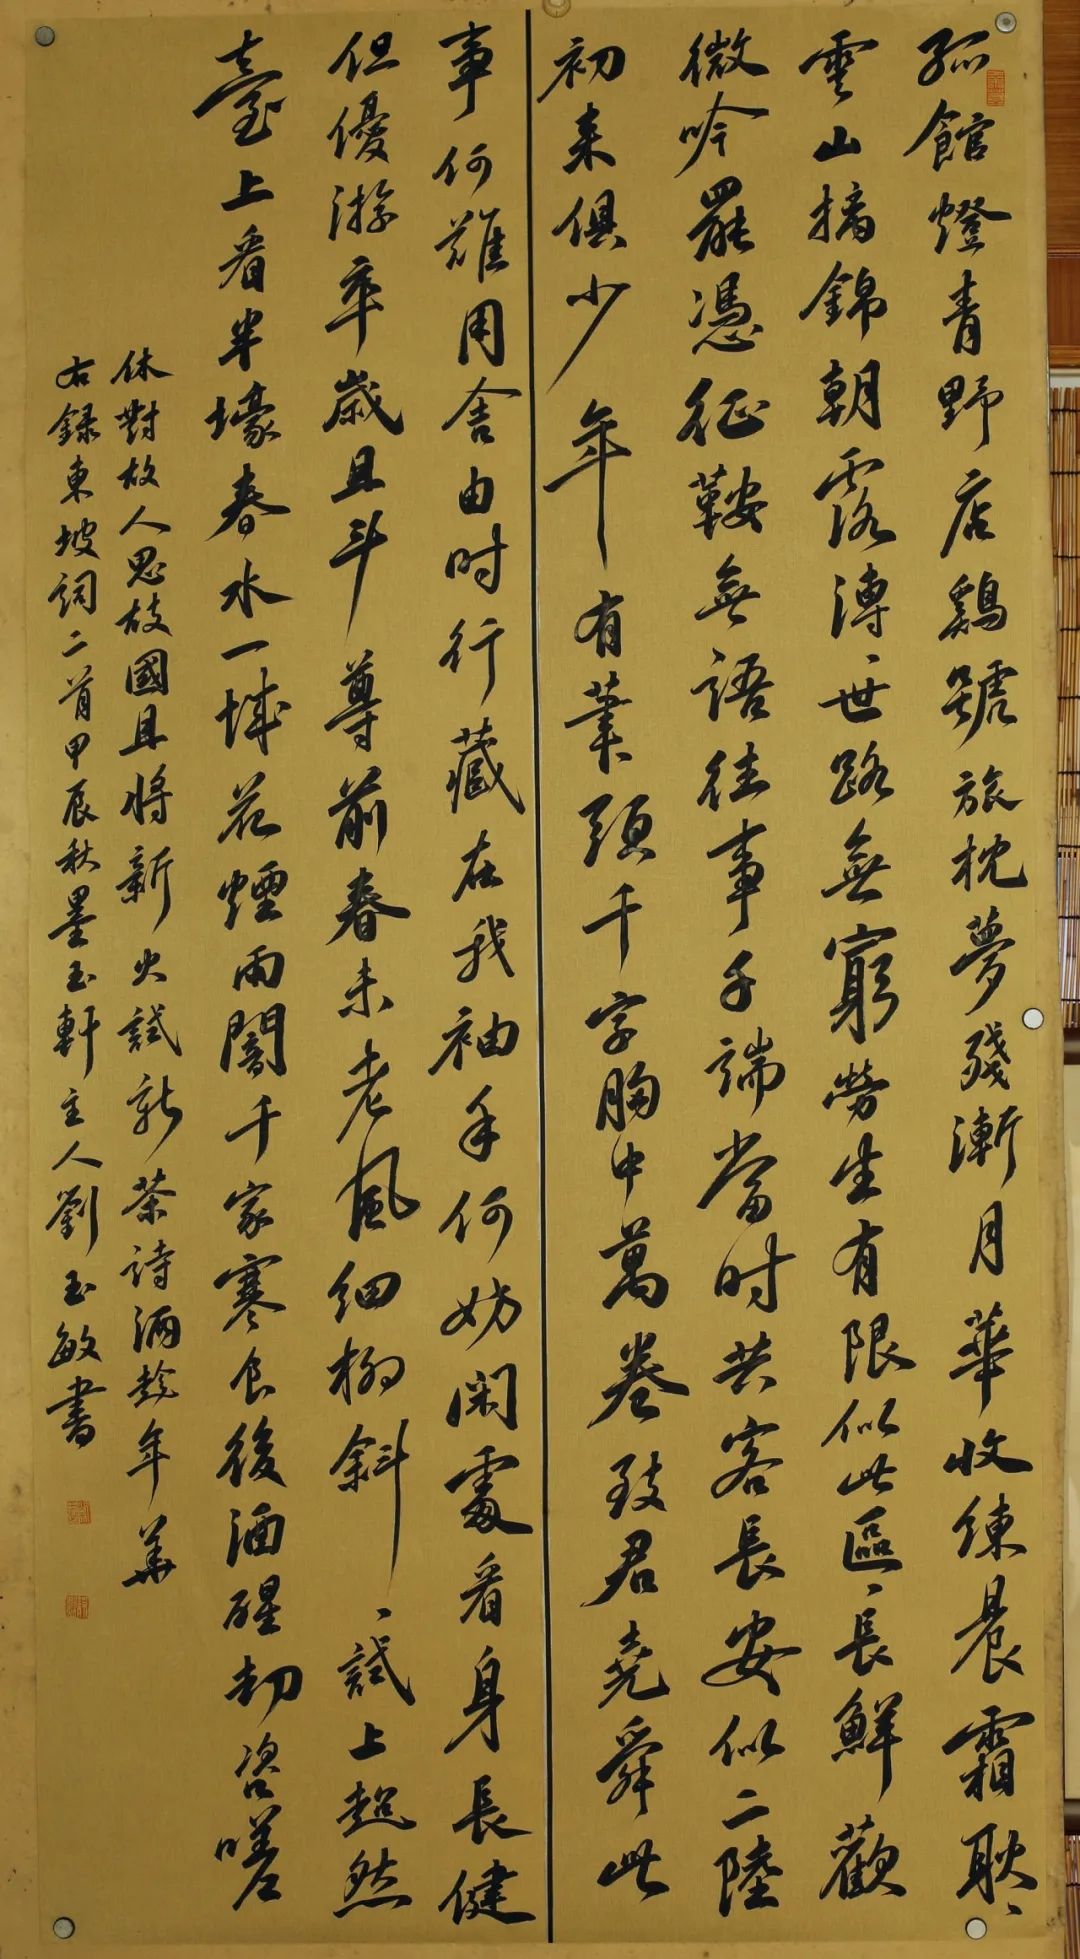 孤館燈青野店鷄號旅枕夢殘漸月華收練晨霜耿、
雲山摛錦朝露漙、世路無窮勞生有限似此區、長鮮歡
微吟罷憑征鞍無語往事千端當时共客長安似二陸
初來俱少年有筆頭千字胸中萬卷致君堯舜此
事何難用舍由时行藏在我袖手何妨閑處看身長健
但優游卒歲且斗尊前春未老風細柳斜、試上超然
臺上看半壕春水一城花煙雨闇千家寒食後酒醒却咨嗟
休對故人思故國且將新火試新茶詩酒趁年華
右録東坡詞二首甲辰秋墨玉軒主人劉玉敏書